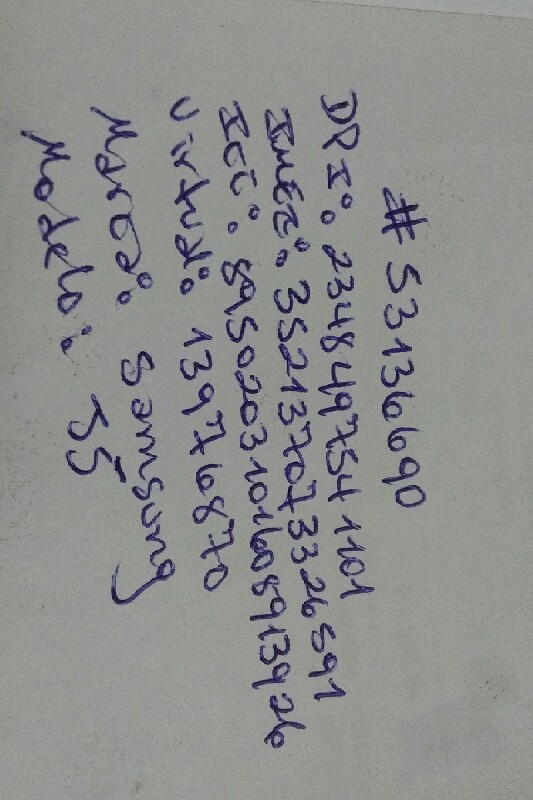 # 53136690
DPI: 2348 49754 1101
IMEI: 352137073326891
ICC: 8950203101608913926
Virtual: 139776870
Marca: Samsung
Modelo: J5